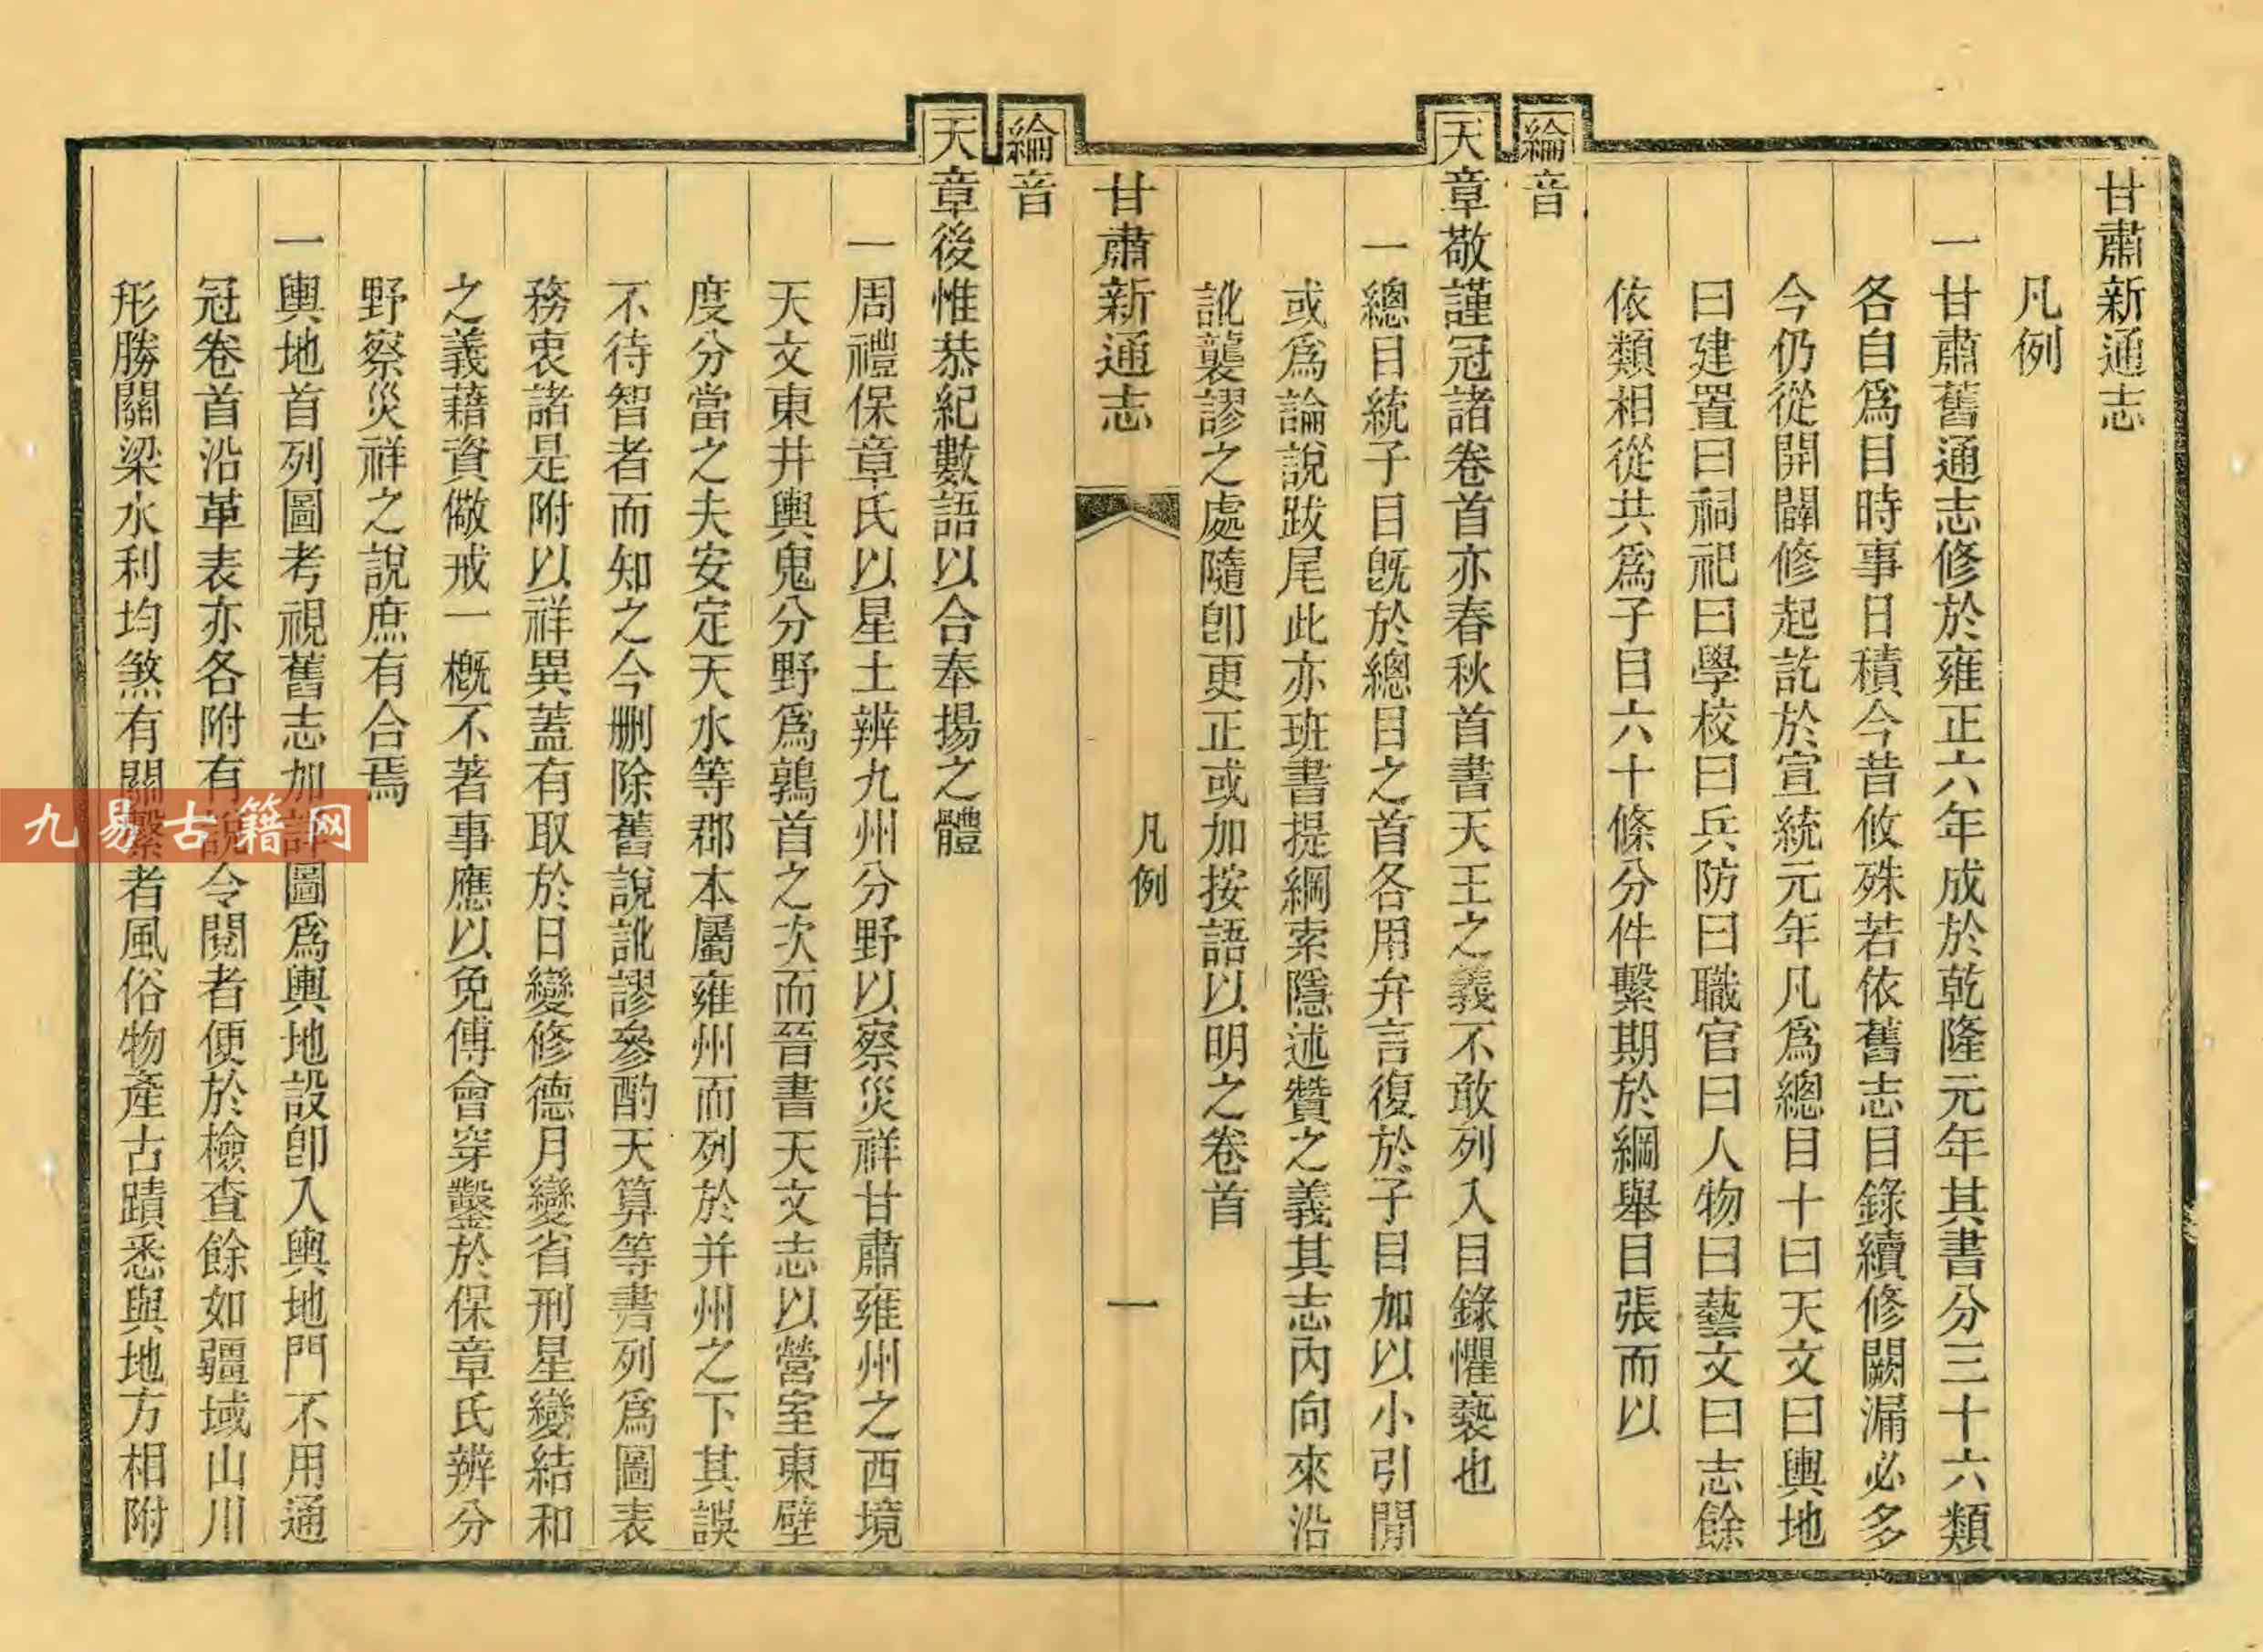 甘肅新通志
凡例
一甘肅舊通志修於雍正六年成於乾隆元年其書分三十六類
各自爲目時事日積今昔攸殊若依舊志目錄續修闕漏必多
今仍從開闢修起訖於宣統元年凡爲總目十曰天文曰輿地
曰建置曰祠祀曰學校曰兵防曰職官曰人物曰藝文曰志餘
依類相從共爲子目六十條分件繫期於綱舉目張而以
綸音
天章敬謹冠諸卷首亦春秋首書天王之義不敢列入目錄懼褻也
一總目統子目旣於總目之首各用弁言復於子目加以小引間
或爲論說跋尾此亦班書提綱索隱述贊之義其志內向來沿
訛襲謬之處隨卽更正或加按語以明之卷首
甘肅新通志
凡例
一
綸音
天章後惟恭紀數語以合奉揚之體
一周禮保章氏以星土辨九州分野以察災祥甘肅雍州之西境
天文東井輿鬼分野爲鶉首之次而晉書天文志以營室東壁
度分當之夫安定天水等郡本屬雍州而列於并州之下其誤
不待智者而知之今刪除舊說訛謬參酌天算等書列爲圖表
務衷諸是附以祥異蓋有取於日變修德月變省刑星變結和
之義藉資儆戒一概不著事應以免傅會穿鑿於保章氏辨分
野察災祥之說庶有合焉
一輿地首列圖考視舊志加詳圖爲輿地設卽入輿地門不用通
冠卷首沿革表亦各附有說令閱者便於檢查餘如疆域山川
形勝關梁水利均煞有關繫者風俗物產古蹟悉與地方相附
九易古籍网